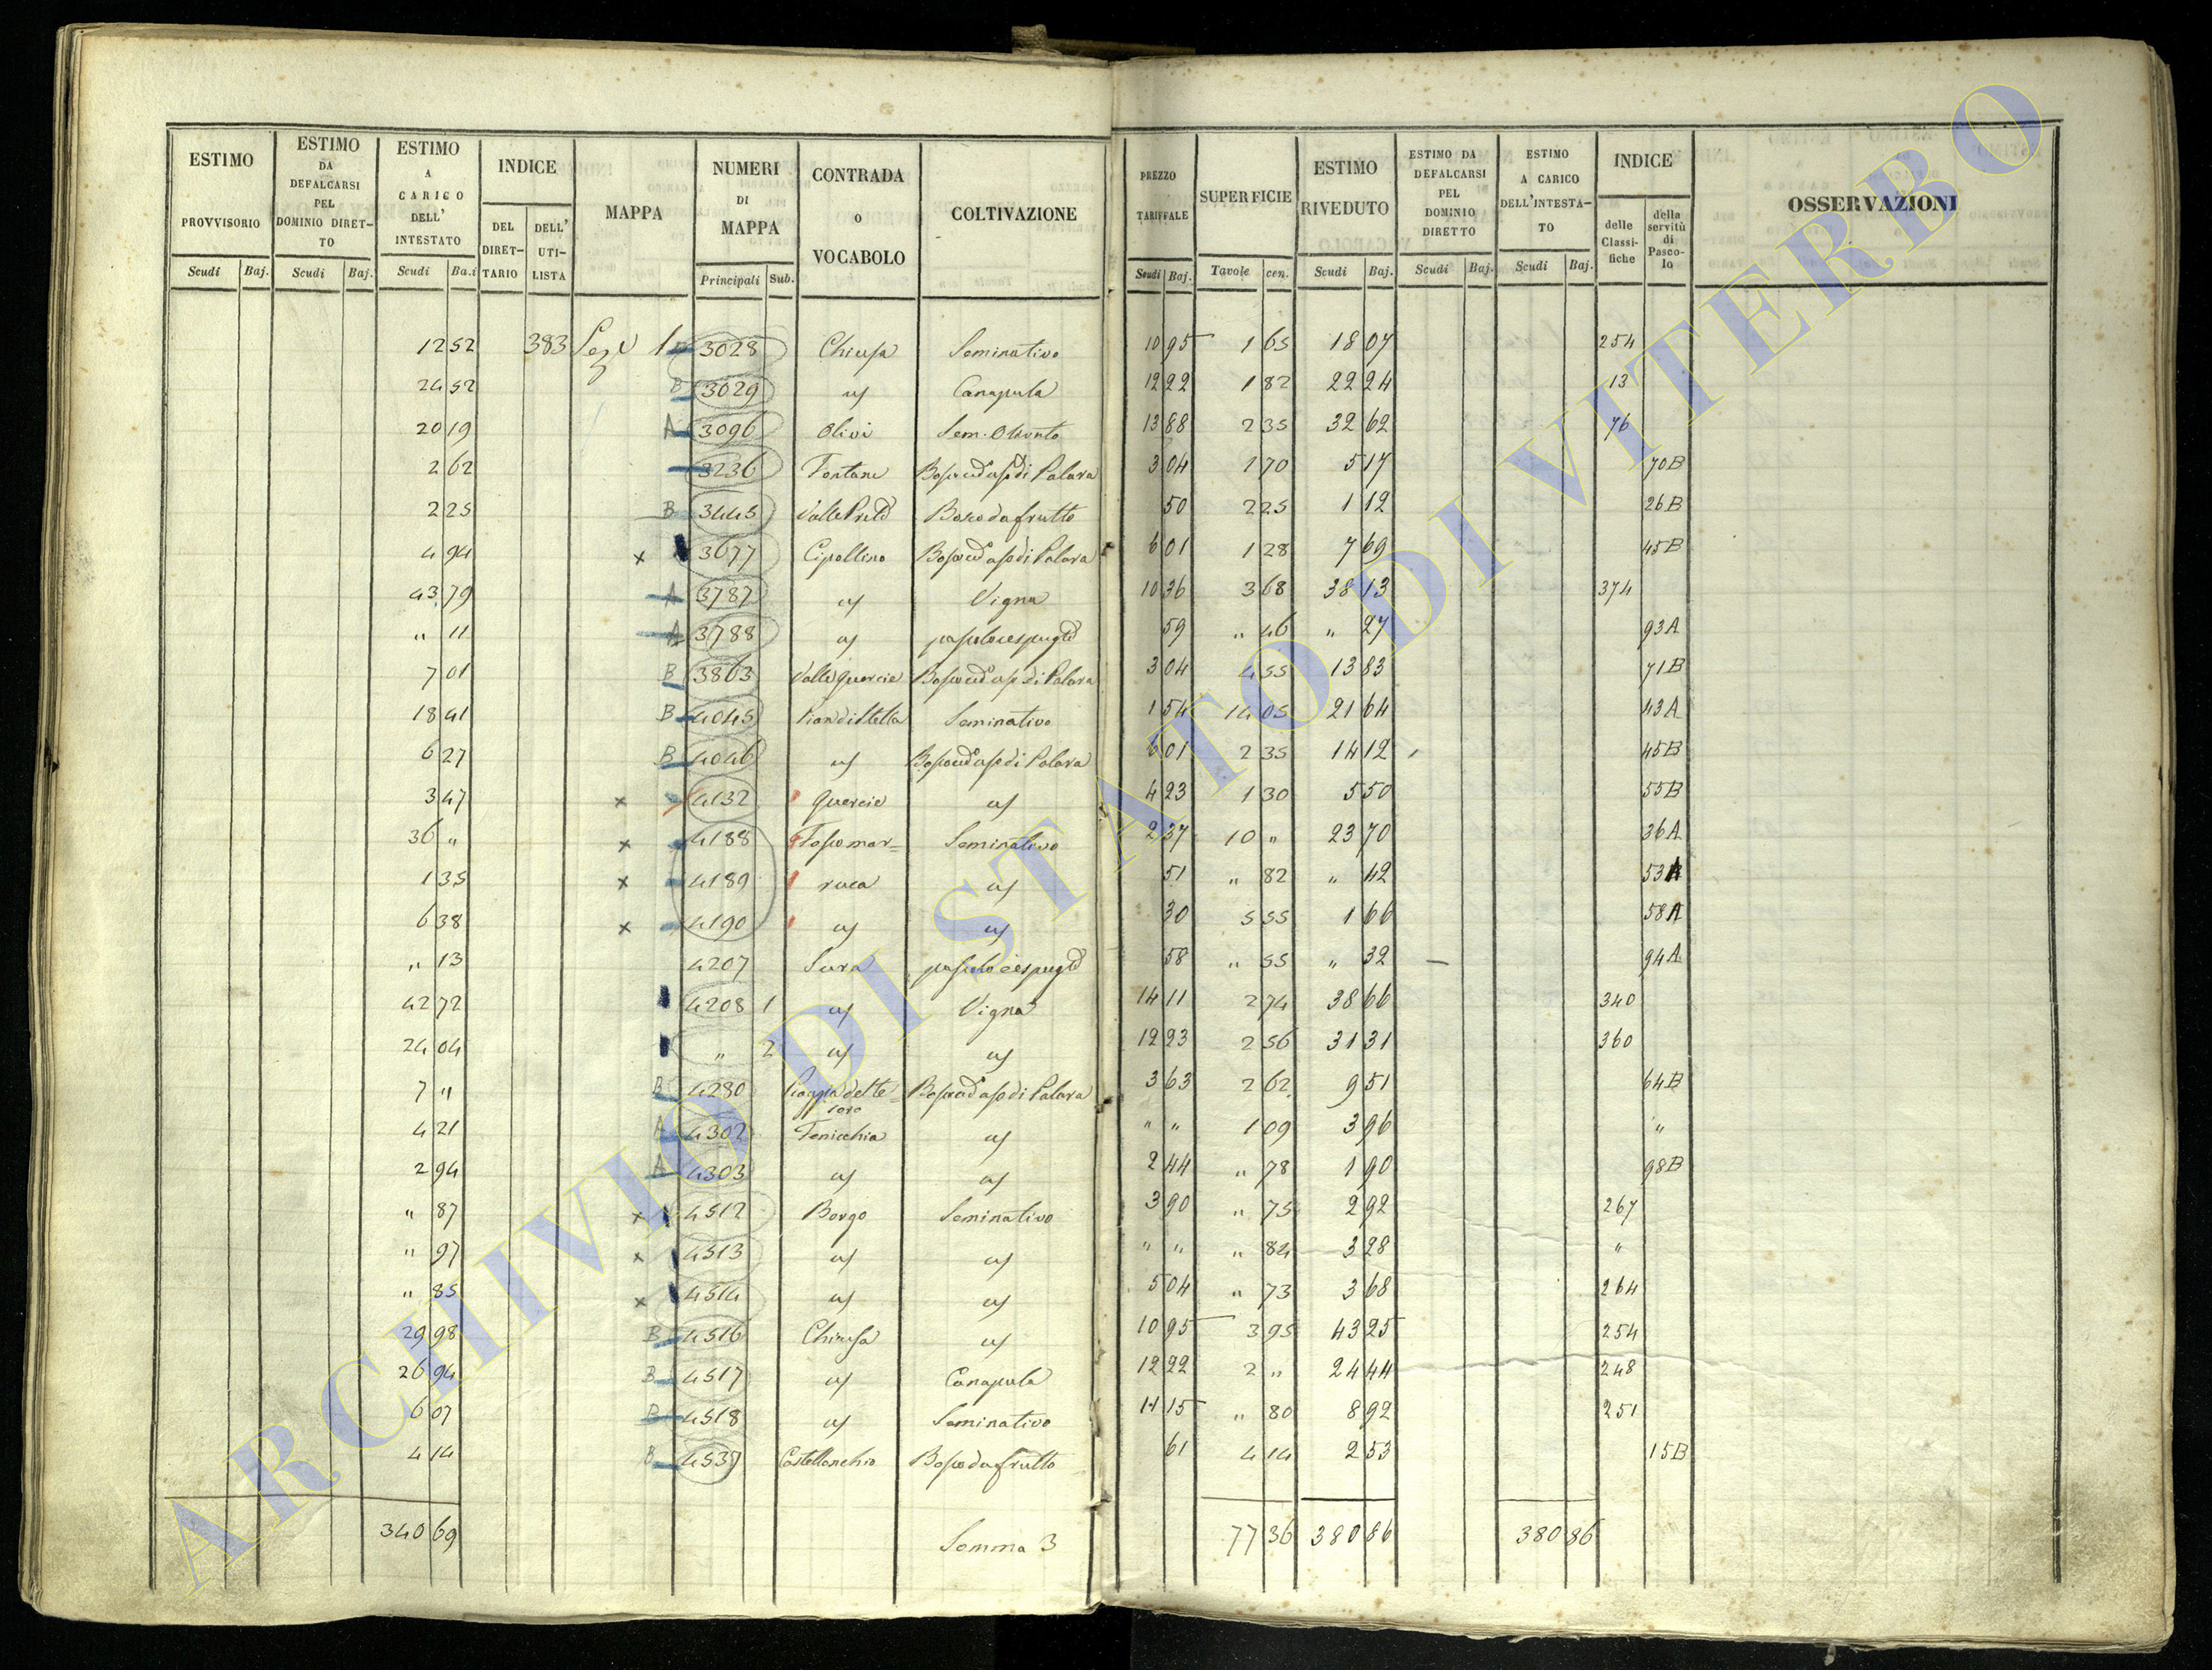 ESTIMO PROVVISORIO Scudi Baj.
ESTIMO DA DEFALCARSI PEL DOMINIO DIRET-TO Scudi Baj.
ESTIMO A CARICO DELL' INTESTATO Scudi Ba.i
INDICE DEL DIRET-TARIO DELL' UTI-LISTA
MAPPA
NUMERI DI MAPPA Principali Sub.
CONTRADA O VOCABOLO
COLTIVAZIONE
PREZZO TARIFFALE Scudi Baj.
SUPERFICIE Tavole cen.
ESTIMO RIVEDUTO Scudi Baj.
ESTIMO DA DEFALCARSI PEL DOMINIO DIRETTO Scudi Baj.
ESTIMO A CARICO DELL'INTESTA-TO Scudi Baj.
INDICE delle Classi-fiche della servitù di Pasco-lo
OSSERVAZIONI
12 52 383 1 3028 Chiusa Seminativo 10 95 1 65 18 07 254
24 52 B 3029 Canapula 12 22 1 82 22 24 13
20 19 A 3096 Olivi Sem. Olivato 13 88 2 35 32 62 76
2 62 3236 Fontane 3 04 1 70 5 17 70B
2 25 B 3445 Bosco da frutto 50 2 25 1 12 26B
4 94 x 3677 Cipollino 6 01 1 28 7 69 45B
43 79 A 3787 Vigna 10 36 3 68 38 13 374
" 11 A 3788 59 " 46 " 27 93A
7 01 B 3863 Valle quercie 3 04 4 55 13 83 71B
18 41 B 4045 Seminativo 1 54 14 05 21 64 43A
6 27 B 4046 6 01 2 35 14 12 45B
3 47 x 4132 Quercie 4 23 1 30 5 50 55B
36 " x 4188 Fosso mar= Seminativo 2 37 10 " 23 70 36A
1 35 x 4189 ruca 51 " 82 " 42 53A
6 38 x 4190 30 5 55 1 66 58A
" 13 4207 58 " 55 " 32 94A
42 72 4208 1 Vigna 14 11 2 74 38 66 340
24 04 " 2 12 23 2 56 31 31 360
7 " B 4280 3 63 2 62 9 51 64B
4 21 A 4302 Fenicchia " " 1 09 3 96 "
2 94 A 4303 2 44 " 78 1 90 98B
" 87 x 4512 Borgo Seminativo 3 90 " 75 2 92 267
" 97 x 4513 " " " 84 3 28 "
" 85 x 4514 5 04 " 73 3 68 264
29 98 B 4516 Chiusa 10 95 3 95 43 25 254
26 94 B 4517 Canapula 12 22 2 " 24 44 248
6 07 B 4518 Seminativo 11 15 " 80 8 92 251
4 14 B 4537 Castellonchio Bosco da frutto 61 4 14 2 53 15B
340 69 Somma 3 77 36 380 86 380 86
ARCHIVIO DI STATO DI VITERBO